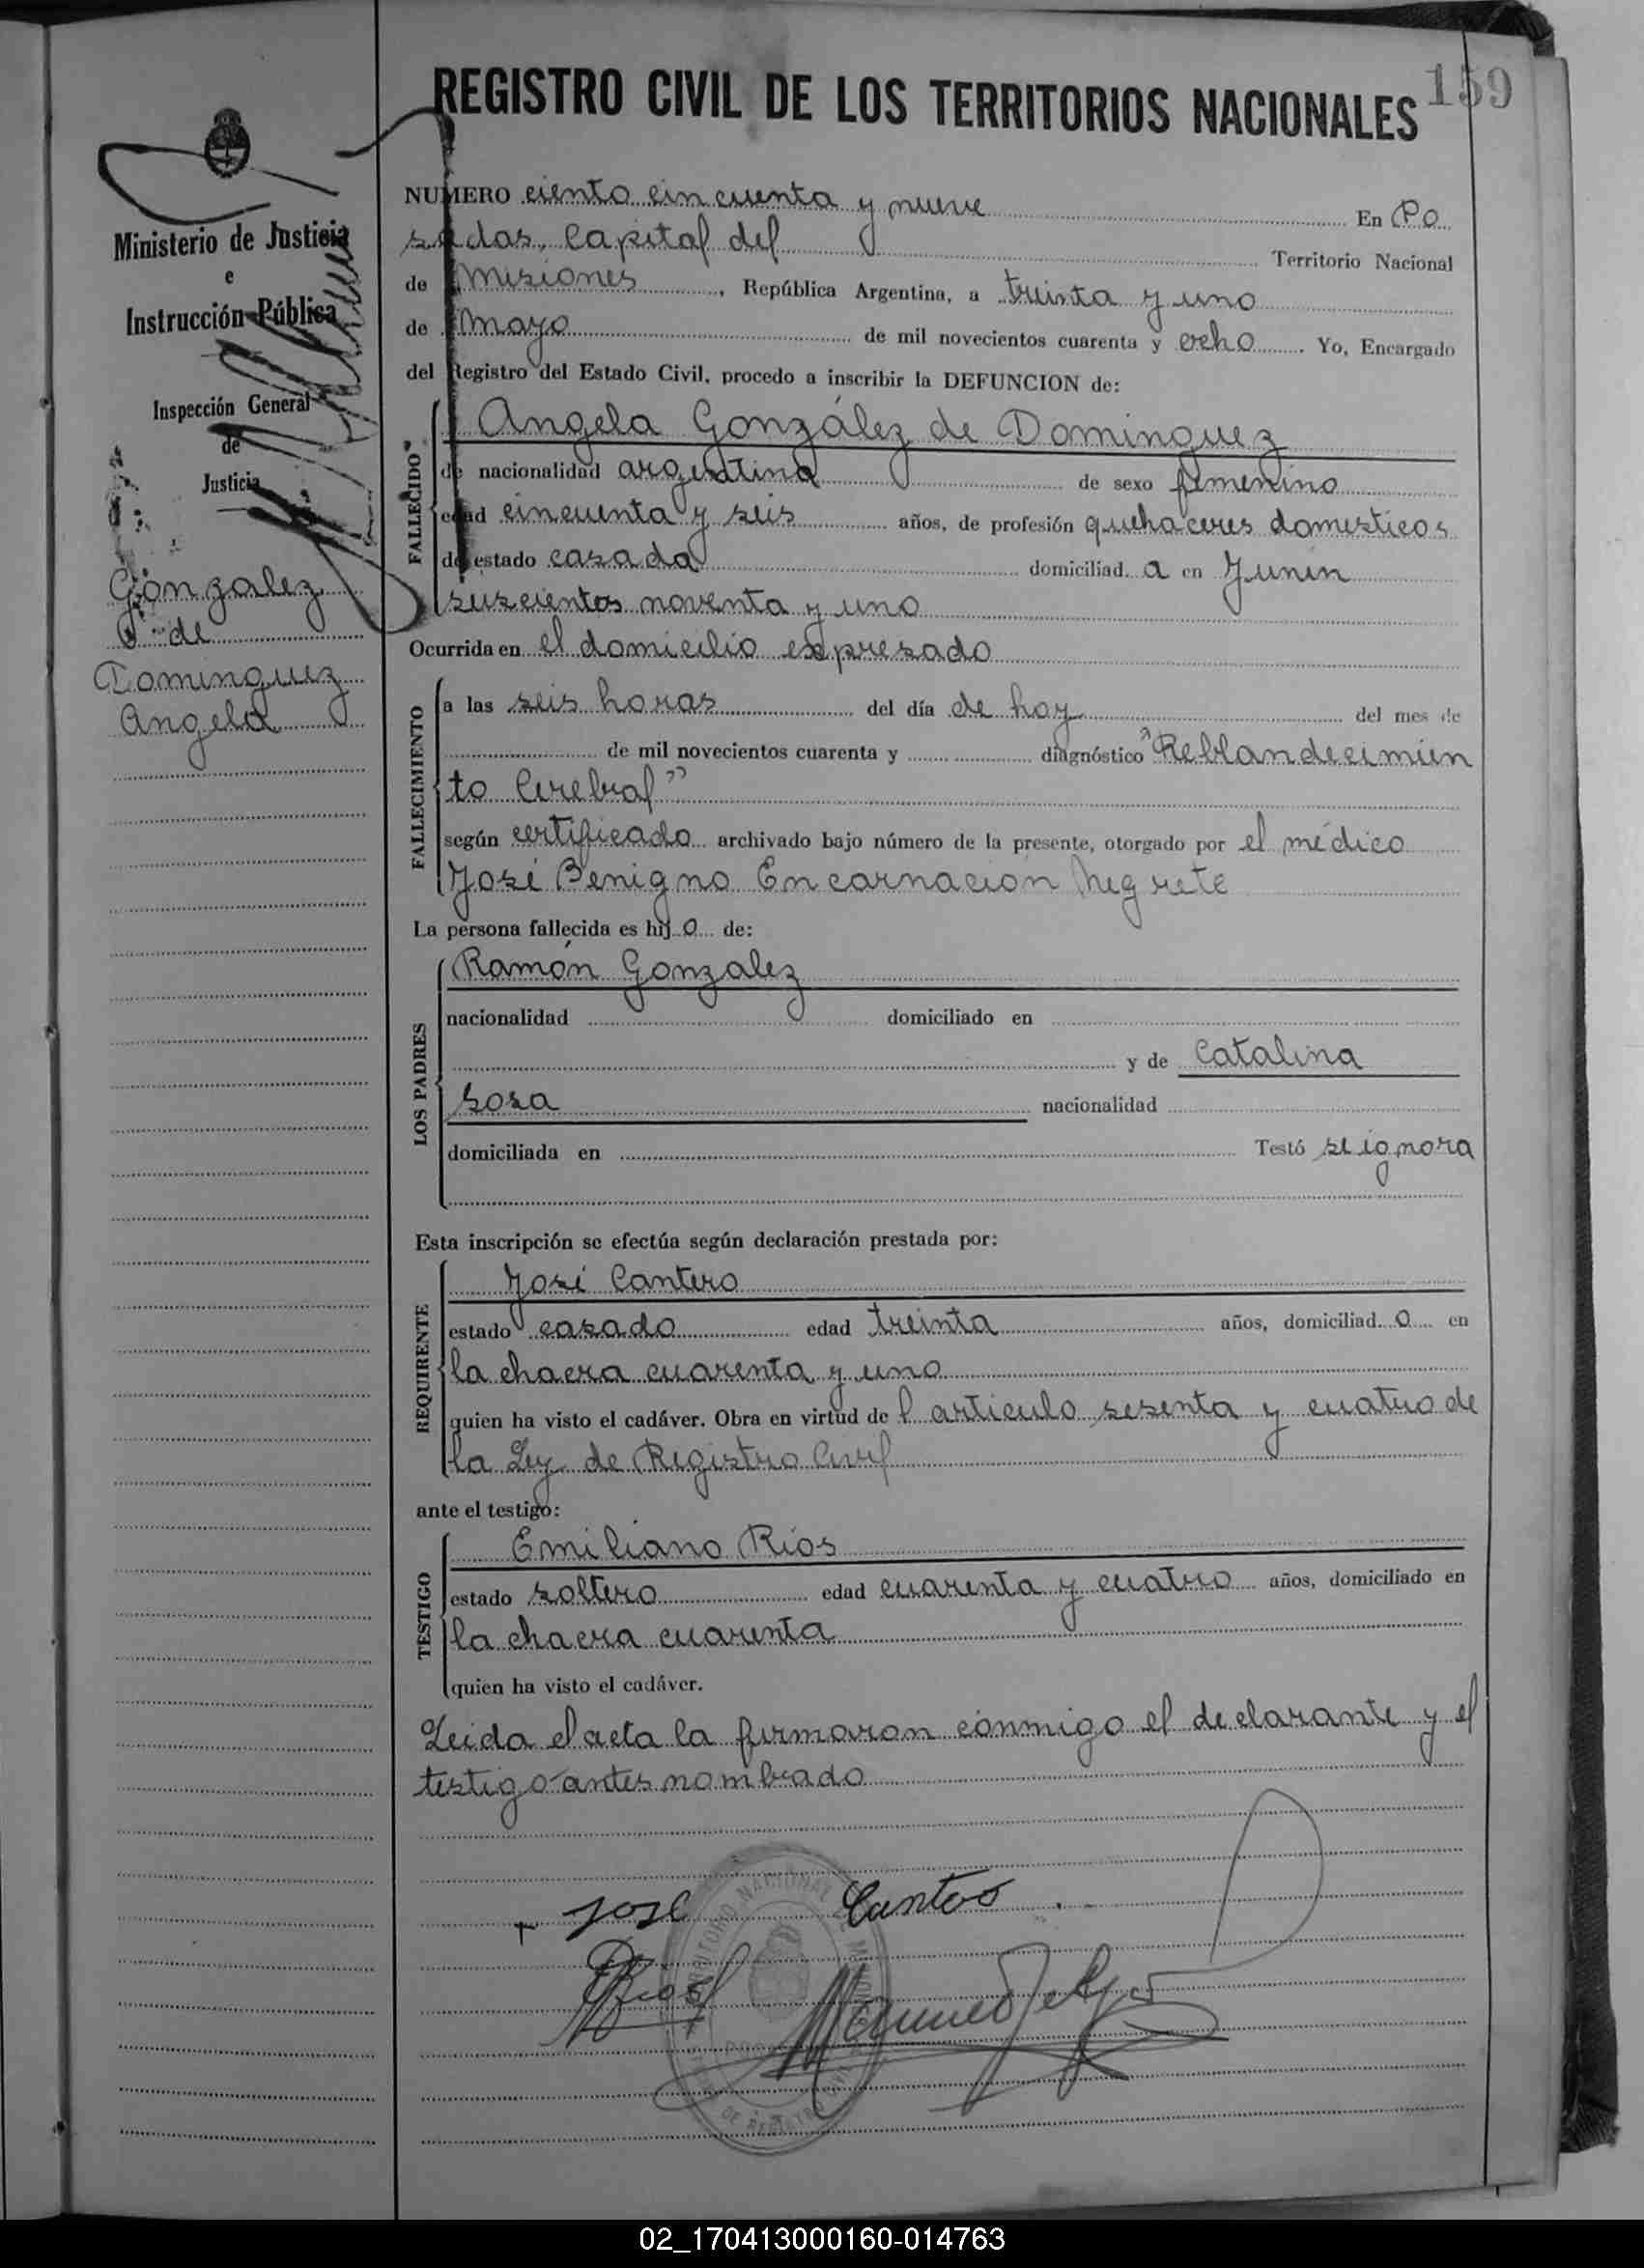 159
REGISTRO CIVIL DE LOS TERRITORIOS NACIONALES
Ministerio de Justicia
e
Instrucción Pública
Inspección General
de
Justicia
Gonzalez
de
Dominguez
Angela
NUMERO ciento cincuenta y nueve En Po
sadas, Capital del Territorio Nacional
de Misiones, República Argentina, a treinta y uno
de Mayo de mil novecientos cuarenta y ocho. Yo, Encargado
del Registro del Estado Civil, procedo a inscribir la DEFUNCION de:
FALLECIDO
Angela González de Dominguez
de nacionalidad argentina de sexo femenino
edad cincuenta y seis años, de profesión quehaceres domesticos
de estado casada domiciliada en Junin
seiscientos noventa y uno
Ocurrida en el domicilio expresado
FALLECIMIENTO
a las seis horas del día de hoy del mes de
de mil novecientos cuarenta y diagnóstico "Reblandecimien
to Cerebral"
según certificado archivado bajo número de la presente, otorgado por el médico
José Benigno Encarnacion Negrete
La persona fallecida es hijo de:
LOS PADRES
Ramón Gonzalez
nacionalidad domiciliado en
y de Catalina
Sosa nacionalidad
domiciliada en Testó se ignora
Esta inscripción se efectúa según declaración prestada por:
REQUIRENTE
José Cantero
estado casado edad treinta años, domiciliado en
la chacra cuarenta y uno
quien ha visto el cadáver. Obra en virtud del articulo sesenta y cuatro de
la Ley de Registro Civil
ante el testigo:
TESTIGO
Emiliano Ríos
estado soltero edad cuarenta y cuatro años, domiciliado en
la chacra cuarenta
quien ha visto el cadáver.
Leida el acta la firmaron conmigo el declarante y el
testigo antes nombrado
José
Rios
02_170413000160-014763